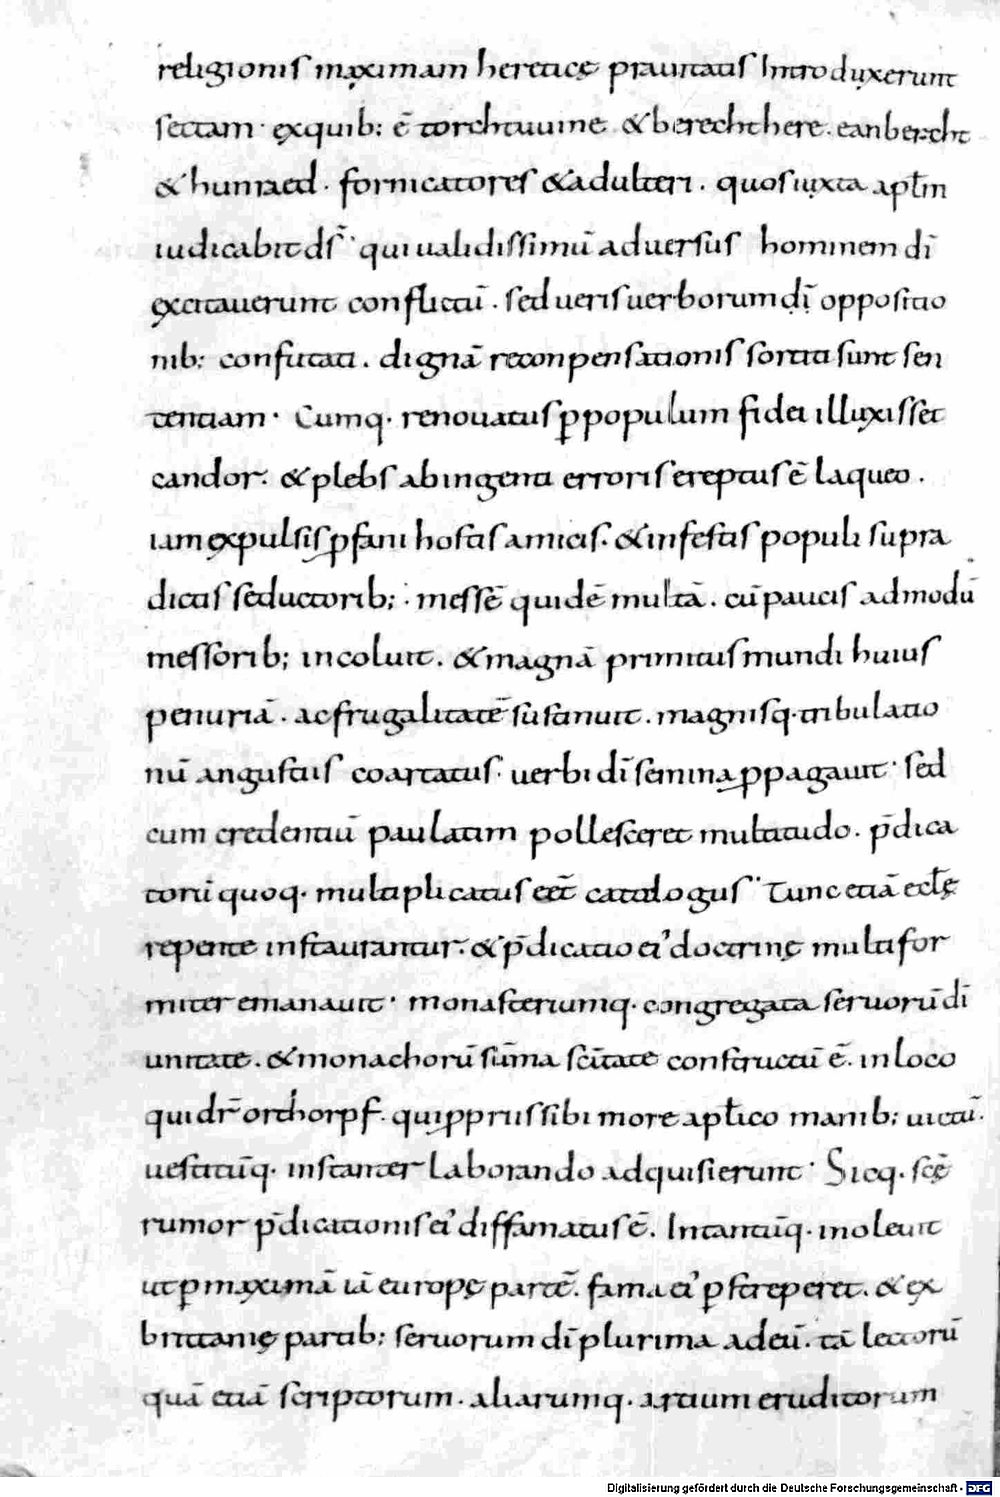 religionis maximam heretice prauitatis Introduxerunt
sectam· exquib; ē torchtuuine &berechthere. eanbercht
&hunraed· fornicatores &adulteri. quosiuxta aptm̄
iudicabit ds̄· qui ualidissimū aduersus hominem dī
excitauerunt conflictū. sed ueris uerborum dī oppositio
nib; confutati. dignā reconpensationis sortiti sunt sen
tentiam· Cumq· renouatus ꝑpopulum fidei illuxisset
candor. &plebs abingenti erroris ereptus ē laqueo.
iam expulsis ꝓfani hostis amicis. &infestis populi supra
dictis seductorib;· messē quidē multā. cū paucis admodū
messorib; incoluit. &magnā primitus mundi huius
penuriā. acfrugalitatē sustinuit. magnisq· tribulatio
nū angustiis coartatus. uerbi dī semina ꝓpagauit· sed
cum credentiū paulatim pollesceret multitudo. p̄dica
torū quoq· multiplicatus eēt catalogus· Tunc etiā eclę
repente instaurantur. &p̄dicatio eiꝰ doctrinę multifor
miter emanauit· monasteriumq· congregata seruorū dī
unitate. &monachorū sūma scītate constructū ē. inloco
quidr̄ orthorpf. quiꝓpriis sibi more aptl̄ico manib; uictū.
uestitūq. instanter laborando adquisierunt· Sicq. scę̄
rumor p̄dicationis eiꝰ diffamatus ē. Intantūq· inoleuit
ut ꝑmaximā iā europę partē. fama eiꝰ ꝑstreperet. & ex
brittanię partib; seruorum dī plurima adeū. tā lectorū
quā etiā scriptorum. aliarumq· artium eruditorum
Digitalisierung gefördert durch die Deutsche Forschungsgemeinschaft - DFG